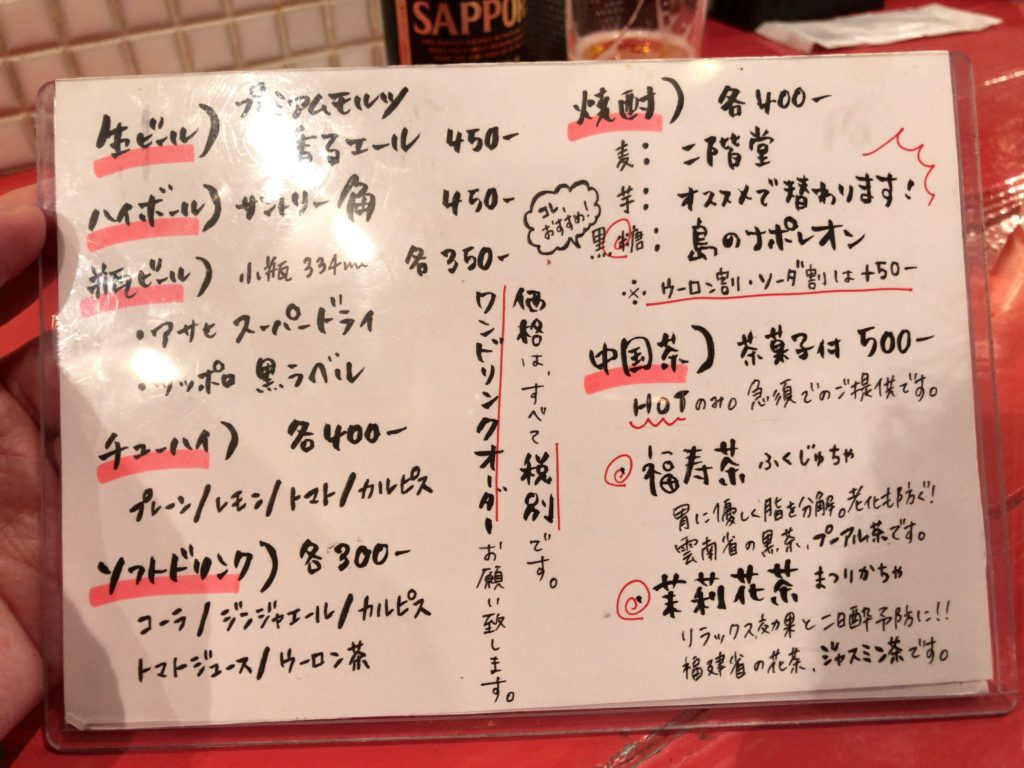 SAPPO
生ビール) プレミアムモルツ
香るエール 450-
ハイボール) サントリー角 450-
瓶ビール) 小瓶 334ml 各350-
・アサヒ スーパードライ
・サッポロ 黒ラベル
チューハイ) 各400-
プレーン/レモン/トマト/カルピス
ソフトドリンク) 各300-
コーラ/ジンジャエール/カルピス
トマトジュース/ウーロン茶
価格は、すべて税別です。
ワンドリンクオーダーお願い致します。
焼酎) 各400-
麦: 二階堂
芋: オススメで替わります!
コレ、おすすめ!
黒糖: 島のナポレオン
※ ウーロン割・ソーダ割は+50-
中国茶) 茶菓子付 500-
HOTのみ。急須でのご提供です。
福寿茶 ふくじゅちゃ
胃に優しく脂を分解。老化も防ぐ!
雲南省の黒茶、プーアル茶です。
茉莉花茶 まつりかちゃ
リラックス効果と二日酔予防に!!
福建省の花茶、ジャスミン茶です。